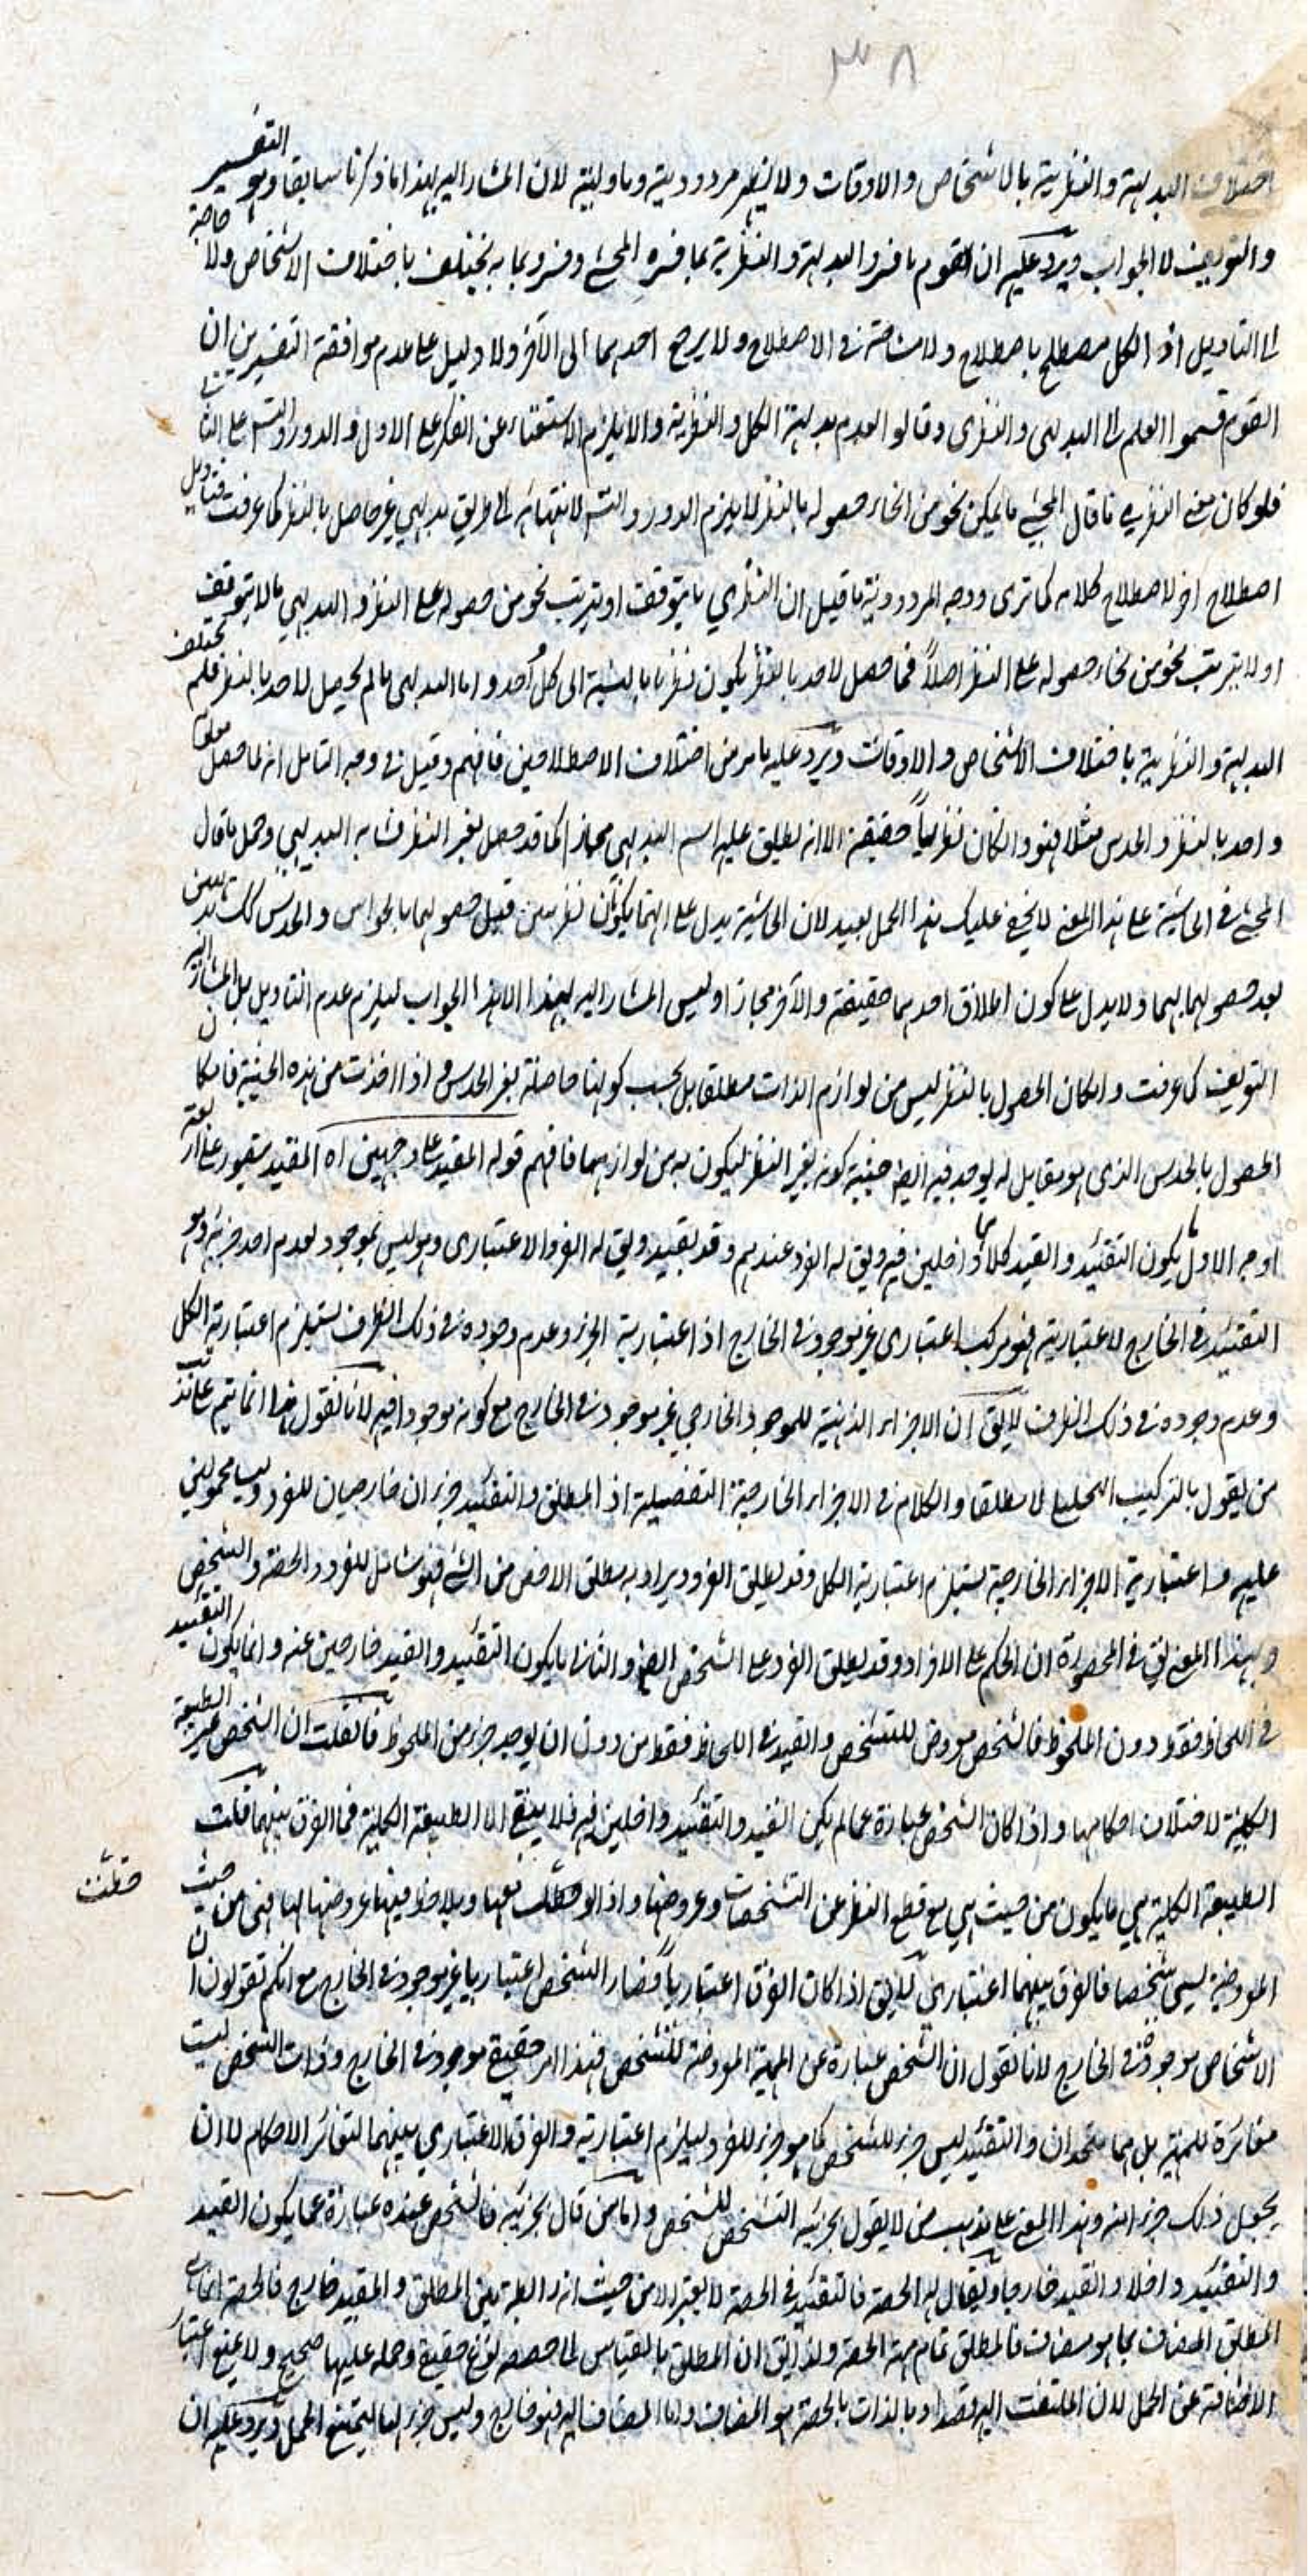 ٣٨
اختلاف البديهية والنظرية بالاشخاص والاوقات ولا يظهر مردوديته وماولیته لان المشار اليه بهذا ما ذكرنا سابقا وهو التفسير
والتعريف لا الجواب ويرد عليه ان القوم ما فسروا البديهية والنظرية بما فسره المحشي وفسروا بما به يختلف باختلاف الاشخاص ولا حاجة
الى التاويل اذ الكل مصطلح باصطلاح ولا مشاحة في الاصطلاح ولا يرجح احدهما الى الآخر ولا دليل على عدم موافقة التفسيرين ان
القوم قسموا العلم الى البديهي والنظري وقالوا لعدم بديهية الكل والنظرية والا يلزم الاستغناء عن الفكر على الاول والدور والتس على الثا
فلو كان معنى النظري ما قال المحشي ما يمكن نحو من انحاء حصوله بالنظر لا يلزم الدور والتس لانتهائه الى طريق بديهي غير حاصل بالنظر كما عرفت فتاويل
اصطلاح اخر لاصطلاح كلامه كما ترى ووجه المردودية ما قيل ان النظري ما يتوقف او يترتب نحو من حصوله على النظر والبديهي ما لا يتوقف
او لا يترتب نحو من انحاء حصوله على النظر اصلاً فما حصل لاحد بالنظر يكون نظريا بالنسبة الى كل احد واما البديهي ما لم يحصل لاحد بالنظر فلم يختلف
البديهية والنظرية باختلاف الاشخاص والاوقات ويرد عليه ما مر من اختلاف الاصطلاحين فافهم وقيل في وجه التامل انه لما حصل مطلقا
واحد بالنظر والحدس مثلا فهو وان كان نظرياً حقيقة الا انه يطلق عليه اسم البديهي مجازا كما قد حصل بغير النظر فشابه البديهي وحمل ما قال
المحشي في الحاشية على هذا المعنى لا يخفى عليك هذا الحمل بعيد لان الحاشية يدل على انهما يكونان نظريين قبل حصولهما بالحواس والحدس كك بديهيين
بعد حصولهما بهما ولا يدل على كون اطلاق احدهما حقيقة والآخر مجازا وليس المشار اليه بهذا الا هذا الجواب ليلزم عدم التاويل بل المشار اليه
التعريف كما عرفت وامكان الحصول بالنظر ليس من لوازم الذات مطلقا بل بحسب كونها حاصلة بغير الحدس واذا اخذت من هذه الحيثية فامكان
الحصول بالحدس الذي هو مقابل له يوجد فيه ايضا حيثية كونه بغير النظر ليكون به من لوازمهما فافهم قوله المقيد على وجهين اه المقيد يتصور على اربعة
اوجه الاول ما يكون التقييد والقيد كلاهما داخلين فيه ويق له الفرد عندهم وقد يقيد ويق له الفرد الاعتباري وهو ليس بموجود لعدم احد جزئيه وهو
التقييد في الخارج لاعتباريته فهو مركب اعتباري غير موجود في الخارج اذ اعتبارية الجزء وعدم وجوده في ذلك الظرف يستلزم اعتبارية الكل
وعدم وجوده في ذلك الظرف لا يق ان الاجزاء الذهنية للموجود الخارجي غير موجود في الخارج مع كونه موجودا فيه لانا نقول هذا انما يتم على مذهب
من يقول بالتركيب التحليلي لا مطلقا والكلام في الاجزاء الخارجية التفصيلية اذ المطلق والتقييد جزءان خارجيان للفرد وليسا محمولين
عليه واعتبارية الاجزاء الخارجية يستلزم اعتبارية الكل وقد يطلق الفرد ويراد به مطلق الاخص من الشئ فهو شامل للفرد والحصة والشخص
وبهذا المعنى يق في المحصورة ان الحكم على الافراد وقد يطلق الفرد على الشخص ايضا والثاني ما يكون التقييد والقيد خارجين عنه وانما يكون التقييد
في اللحاظ فقط دون الملحوظ فالشخص معروض للتشخص والقيد في اللحاظ فقط من دون ان يوجد جزء من الملحوظ فان قلت ان الشخص غير الطبيعة
الكلية لاختلاف احكامها واذا كان الشخص عبارة عما لم يكن القيد والتقييد داخلين فيه فلا يبقى الا الطبيعة الكلية فما الفرق بينهما قلت
الطبيعة الكلية هي ما يكون من حيث هي مع قطع النظر عن التشخصات وعروضها واذا لوحظت معها ويلاحظ فيها عروضها لها فهي من حيث
المعروضية يسمى شخصا فالفرق بينهما اعتباري لا يق اذا كان الفرق اعتبارياً فصار الشخص اعتباريا غير موجود في الخارج مع انكم تقولون ان
الاشخاص موجودة في الخارج لانا نقول ان الشخص عبارة عن المهية المعروضة للتشخص فهذا امر حقيقي موجود في الخارج وذات الشخص ليست
مغائرة للمهية بل هما متحدان والتقييد ليس جزء للشخص كما هو جزء للفرد ليلزم اعتباريته والفرق الاعتباري بينهما لتغائر الاحكام لا ان
يجعل ذلك جزءا منه وهذا المعنى على مذهب من لا يقول بجزئية التشخص للشخص واما من قال بجزئيته فالشخص عنده عبارة عما يكون القيد
والتقييد داخلا والقيد خارجا ويقال له الحصة فالتقييد في الحصة لا يعتبر الا من حيث انه رابطة بين المطلق والمقيد خارج فالحصة انما هي
المطلق المضاف بما هو مضاف فالمطلق تمام مهية الحصة ولذا يق ان المطلق بالقياس الى حصصه نوع حقيقي وحمله عليها صحيح ولا يمنع اعتبار
الاضافة عن الحمل لان الملتفت اليه قصدا وبالذات بالحصة هو المضاف واما المضاف اليه فهو خارج وليس جزء لها ليمتنع الحمل ويرد عليه ان
حظت